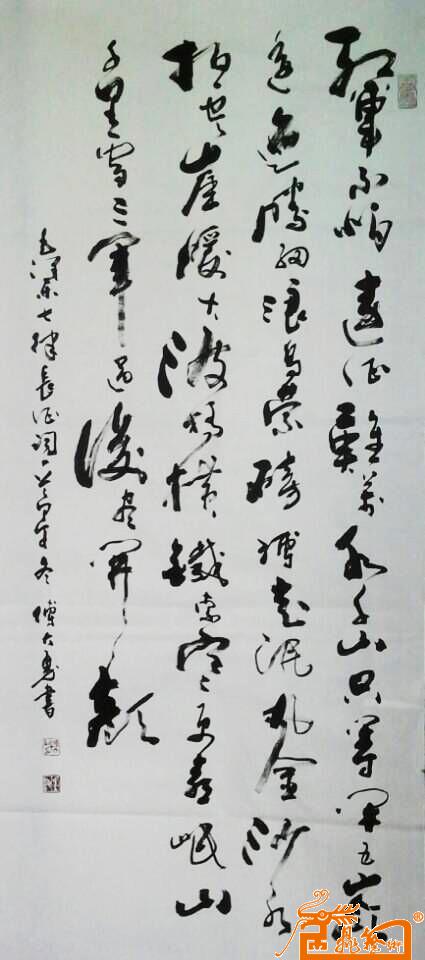 红軍不怕遠征難萬水千山只等闲五嶺
逶迤腾细浪乌蒙磅礴走泥丸金沙水
拍雲崖暖大渡桥横鐵索寒更喜岷山
千里雪三軍過後尽開颜
毛澤東七律長征词 年冬 傅大書